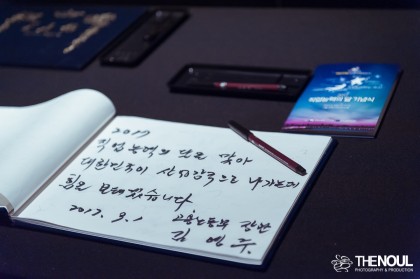 2017
직업능력의 달을 맞아
대한민국이 산업강국으로 나가는데
힘을
2017. 9. 1 고용노동부 장관
김영주
THENOUL
PHOTOGRAPHY & PRODUCTION